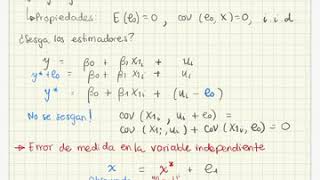 ↳Propiedades: E(e₀)=0, cov(e₀, X)=0, i.i.d
¿Sesga los estimadores?
y = β₀ + β₁ X₁ᵢ + uᵢ
y*+e₀ = β₀ + β₁ X₁ᵢ + uᵢ
y* = β₀ + β₁ X₁ᵢ + (uᵢ - e₀)
No se sesgan! cov(X₁ᵢ, uᵢ + e₀) =
cov(X₁ᵢ, uᵢ) + cov(X₁ᵢ, e₀) = 0
→ Error de medida en la variable independiente
x = x* + e₁